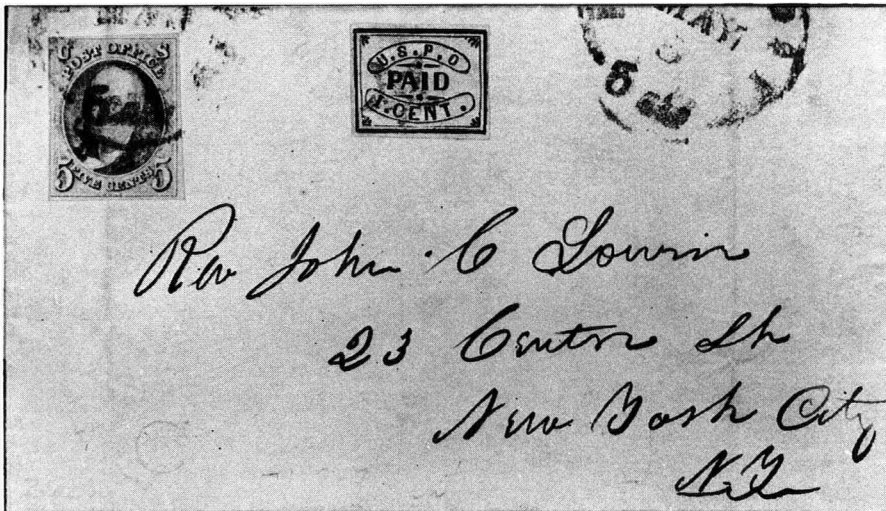 U S
POST OFFICE
5 FIVE CENTS 5
U.S.P.O
PAID
1 CENT.
MAY
5 cts
Rev John C Lowrie
23 Centre St
New York City
N.Y.